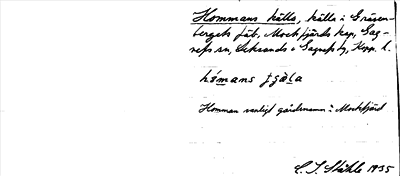 Hommans källa, källa i Gräsen-
bergets fäb., Mockfjärds kap., Gag-
nefs sn, Leksands o Gagnefs tg, Kopp. l.
hómans ʃɛ̀la
Homman vanligt gårdsnamn i Mockfjärd
C. I. Ståhle 1935